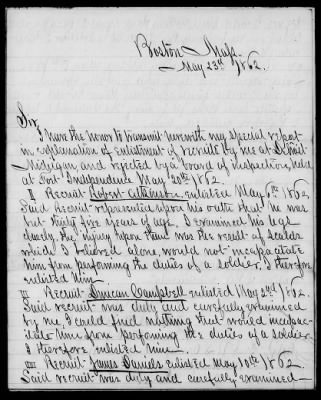 Boston Mass.
May 23rd 1862.
Sir,
I have the honor to transmit herewith my special report
in explanation of enlistment of recruits by me at Detroit
Michigan, and rejected by a board of inspection, held
at Fort Independence May 20th 1862.
I Recruit Robert Atkinson, enlisted May 1st 1862.
Said Recruit represented upon his oath that he was
but thirty five years of age, I examined his legs
closely, the injury upon them was the result of scalds
which I believed alone would not incapacitate
him from performing the duties of a soldier, I therefore
enlisted him
II Recruit Duncan Campbell enlisted May 2nd 1862.
Said recruit was duly and carefully examined
by me, I could find nothing that would incapac-
itate him from performing the duties of a soldier
I therefore enlisted him.
III Recruit James Daniels enlisted May 10th 1862.
Said recruit was duly and carefully examined